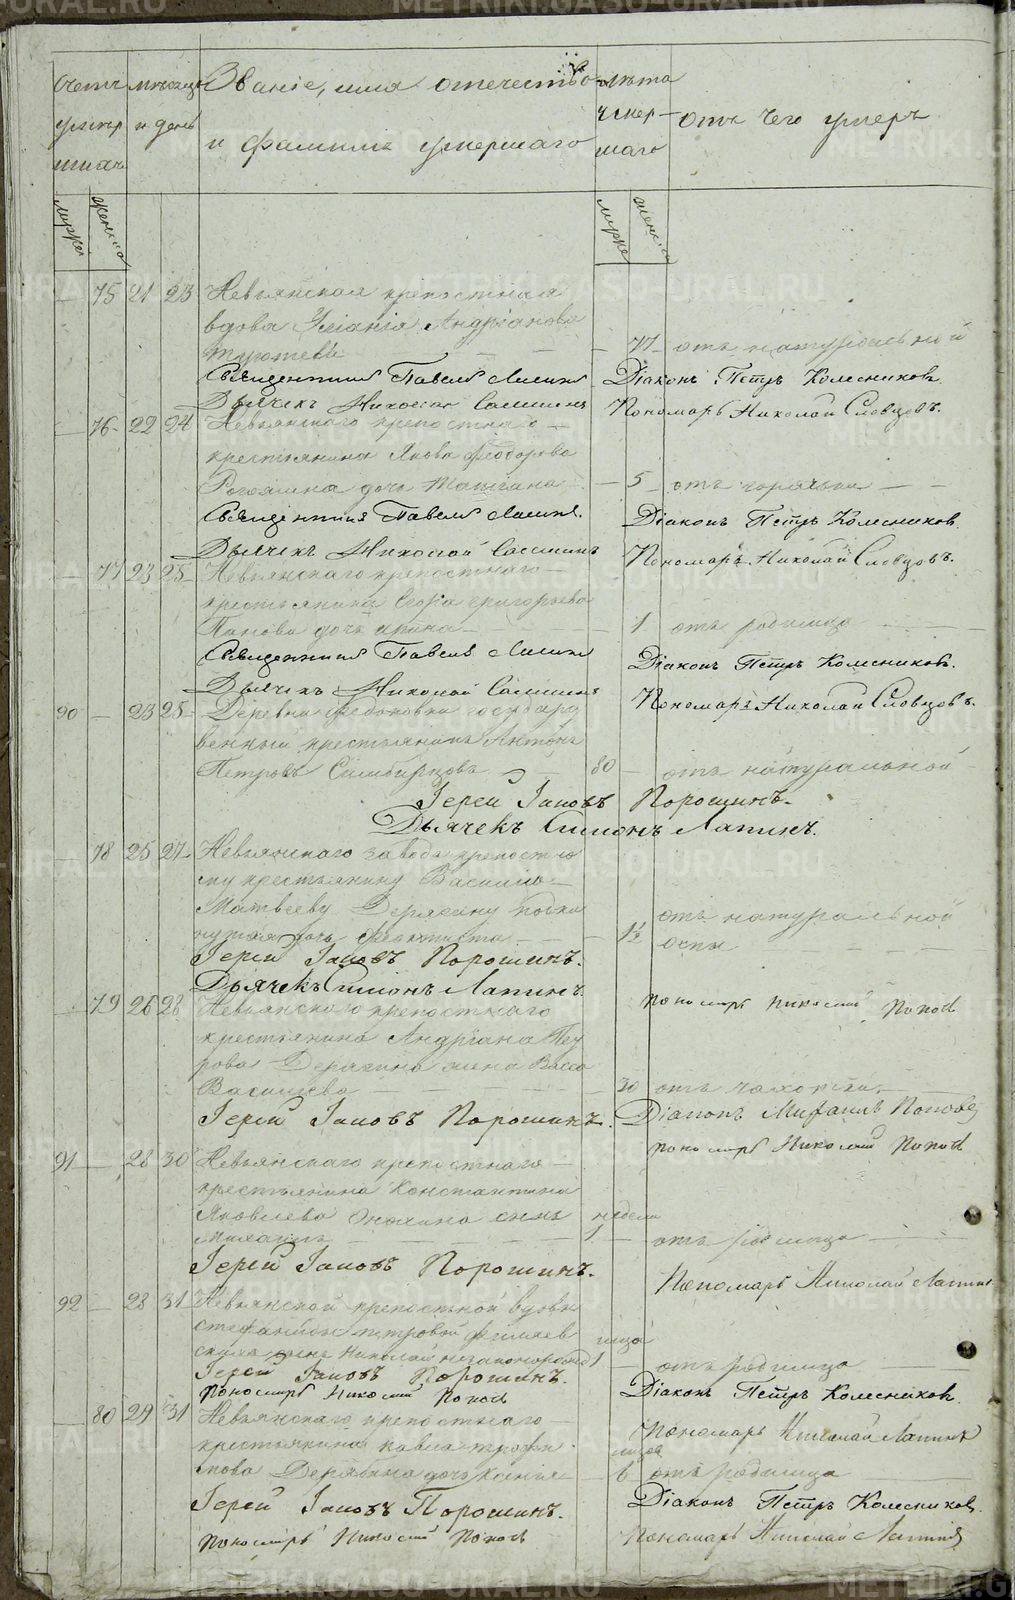 Счетъ умершихъ
мѣсяцъ и день
Званіе, имя отечество
и фамилія умершаго
лѣта умершаго
отъ чего умеръ
мужск женска
мужска женска
75 21 23 Невьянская крепостная
вдова Андріанова
77 отъ натуральной
Священникъ Павелъ
Діаконъ Петръ Колесниковъ.
Дьячекъ Николай
Пономарь Николай Словцовъ.
76 22 24 Невьянскаго крепостнаго
крестьянина Якова Федорова
дочь Татіана 5 отъ горячки
Священникъ Павелъ
Діаконъ Петръ Колесников.
Дьячекъ Николай
Пономарь Николай Словцовъ.
77 23 25 Невьянскаго крепостнаго
крестьянина Егора Григорьева
Панова дочь Ирина 1 отъ родимца
Священникъ Павелъ
Діаконъ Петръ Колесниковъ.
Дьячекъ Николай
Пономарь Николай Словцовъ.
90 23 25 Деревни государст
венный крестьянинъ Антонъ
Петровъ 80 отъ натуральной
Іерей Іаковъ Порошинъ.
Дьячекъ Симіонъ Лапинъ.
78 25 27 Невьянскаго завода крепостно
му крестьянину Василью
Матвееву Дерягину подки
нутая дочь Феоктиста 1½ отъ натуральной
оспы
Іерей Іаковъ Порошинъ.
Дьячекъ Симіонъ Лапинъ.
Пономарь Николай Поповъ
79 26 28 Невьянскаго крепостнаго
крестьянина Андріана Пет
рова Дерягина жена Васса
Васильева 30 отъ чахотки
Іерей Іаковъ Порошинъ.
Діаконъ Михаилъ Поповъ
Пономарь Николай Поповъ
91 28 30 Невьянскаго крепостнаго
крестьянина Константина
Яковлева сынъ
недели
Михаилъ 1 отъ родимца
Іерей Іаковъ Порошинъ.
Пономарь Николай Лапинъ
92 28 31 Невьянской крепостной вдовы
Стефаниды Петровой
сынъ Николай незаконорожд 1 отъ родимца
Іерей Іаковъ Порошинъ.
Діаконъ Петръ Колесников.
Пономарь Николай Поповъ
Пономарь Николай Лапинъ
80 29 31 Невьянскаго крепостнаго
крестьянина Павла Трофи
мова дочь Ксенія 6 отъ родимца
Іерей Іаковъ Порошинъ.
Діаконъ Петръ Колесников.
Пономарь Николай Поповъ
Пономарь Николай Лапинъ
METRIKI.GASO-URAL.RU